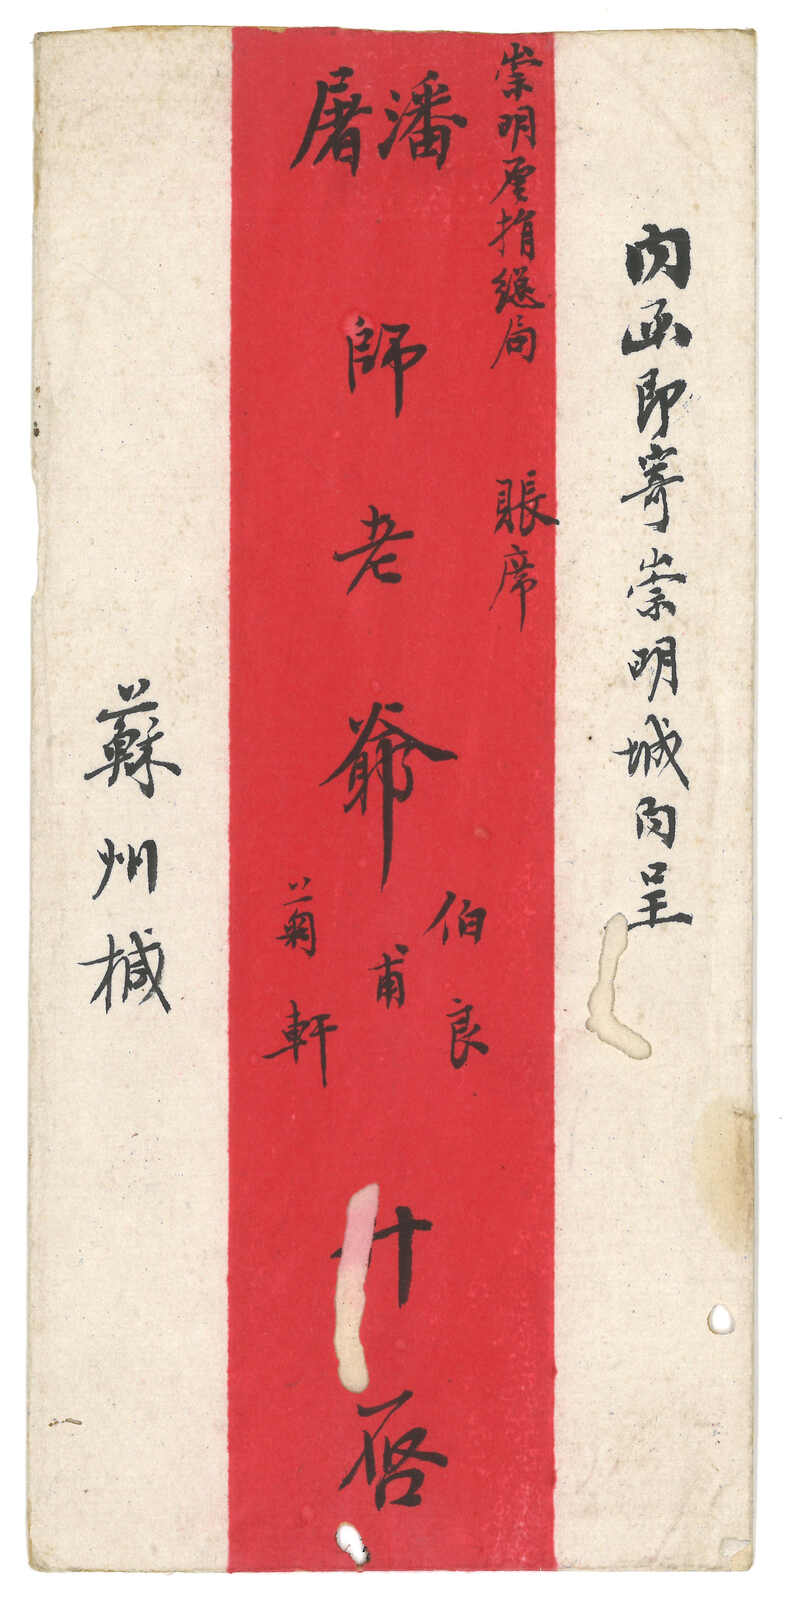 內函即寄崇明城內呈
崇明厘捐緫局 賬席
潘屠師老爺伯良菊軒甫升啟
蘇州椷